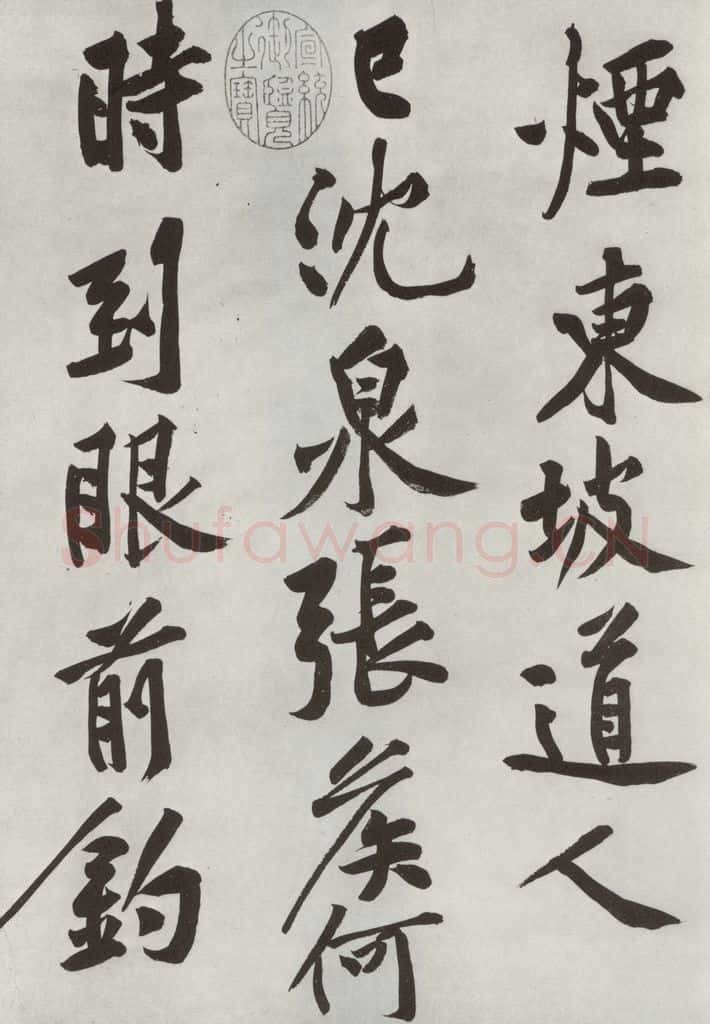 煙東坡道人
已沈泉張矦何
時到眼前釣
宣統御覽之寶
Shufawang.CN